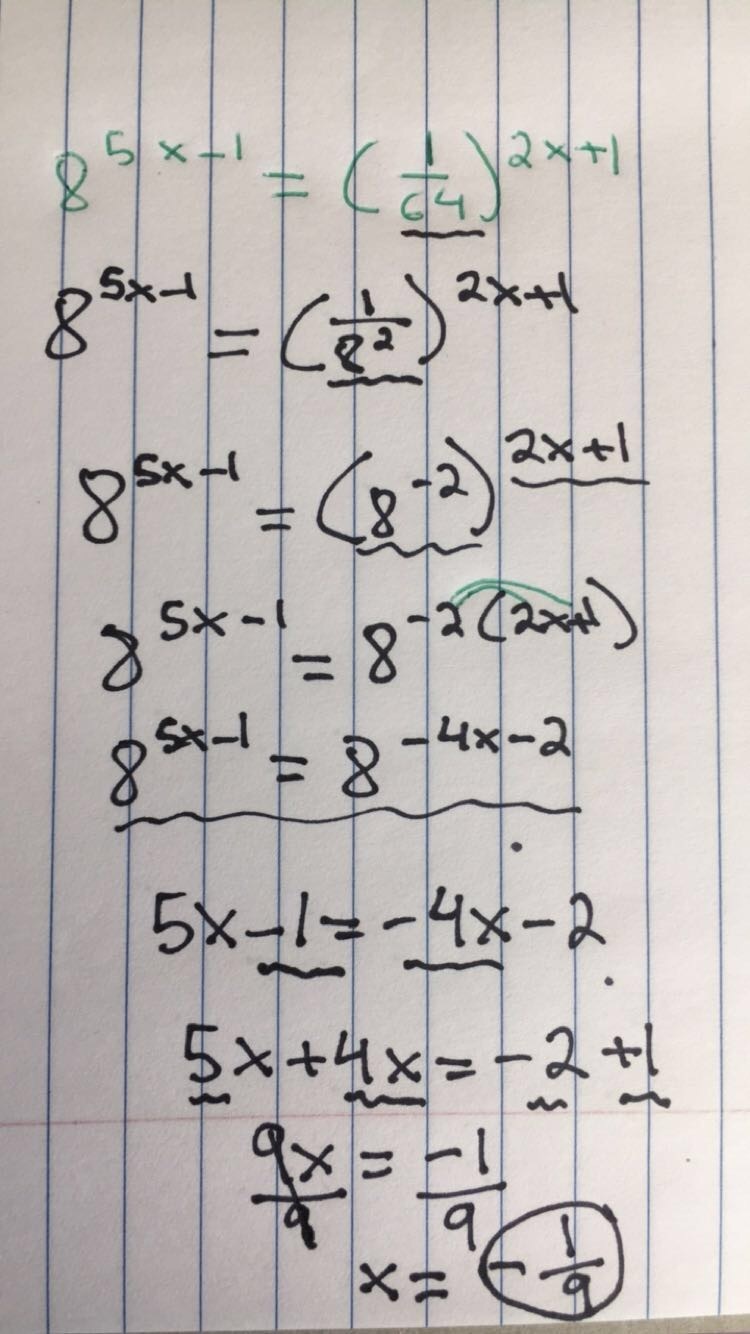 8^(5x-1) = (1/64)^(2x+1)
8^(5x-1) = (1/8^2)^(2x+1)
8^(5x-1) = (8^-2)^(2x+1)
8^(5x-1) = 8^(-2(2x+1))
8^(5x-1) = 8^(-4x-2)
5x-1 = -4x-2
5x+4x = -2+1
9x/9 = -1/9
x = -1/9